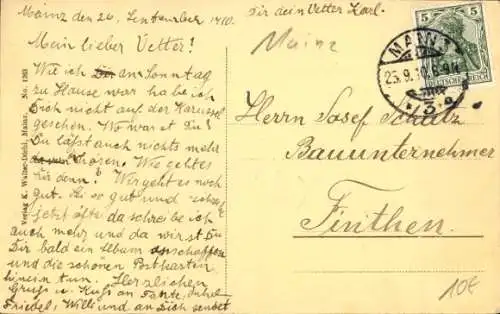 Mainz den 26. September 1910.
Mein lieber Vetter!
Wie ich Dir am Sonntag
zu Hause war habe ich
Dich nicht auf der Karussel
gesehen. Wo warst Du?
Du läßt auch nichts mehr
hören. Wie geht es
Dir denn? Wir geht es noch
gut. Ei so gut und
jetzt öfter da schreibe ich
auch mehr und da wirst Du
Dir bald ein Album anschaffen
und die schönen Postkarten
hinein tun. Herzlichen
Gruss u. Kuss an Tante, Onkel
Friedel, Willi und an Dich sendet
Dir dein Vetter Karl.
Mainz
MAINZ
23.9.10
* 3 *
5 5
DEUTSCHES REICH
Herrn Josef Schatz
Bauunternehmer
Finthen.
10€
Verlag K. Walter, Mainz. No. 1263